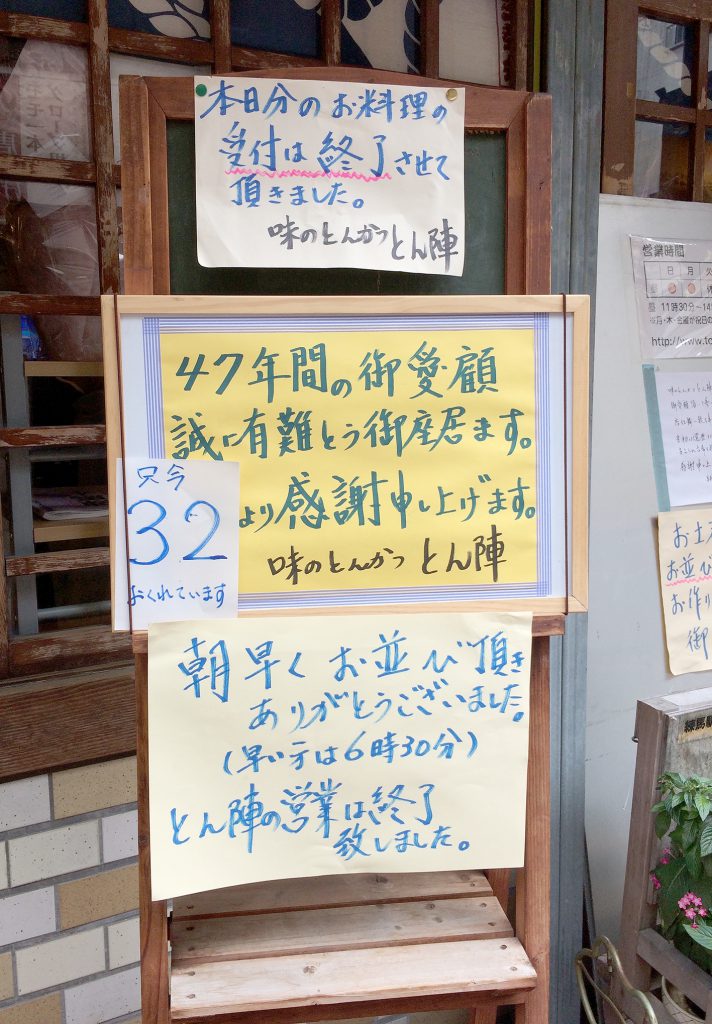 本日分のお料理の
受付は終了させて
頂きました。
味のとんかつとん陣
47年間の御愛顧
誠に有難とう御座居ます。
より感謝申し上げます。
味のとんかつ とん陣
只今
32
おくれています
朝早くお並び頂き
ありがとうございました。
(早い方は6時30分)
とん陣の営業は終了
致しました。
営業時間
日 月 火
休
11時30分~14
http://www.to
お土
お並び
お作り
御
練馬